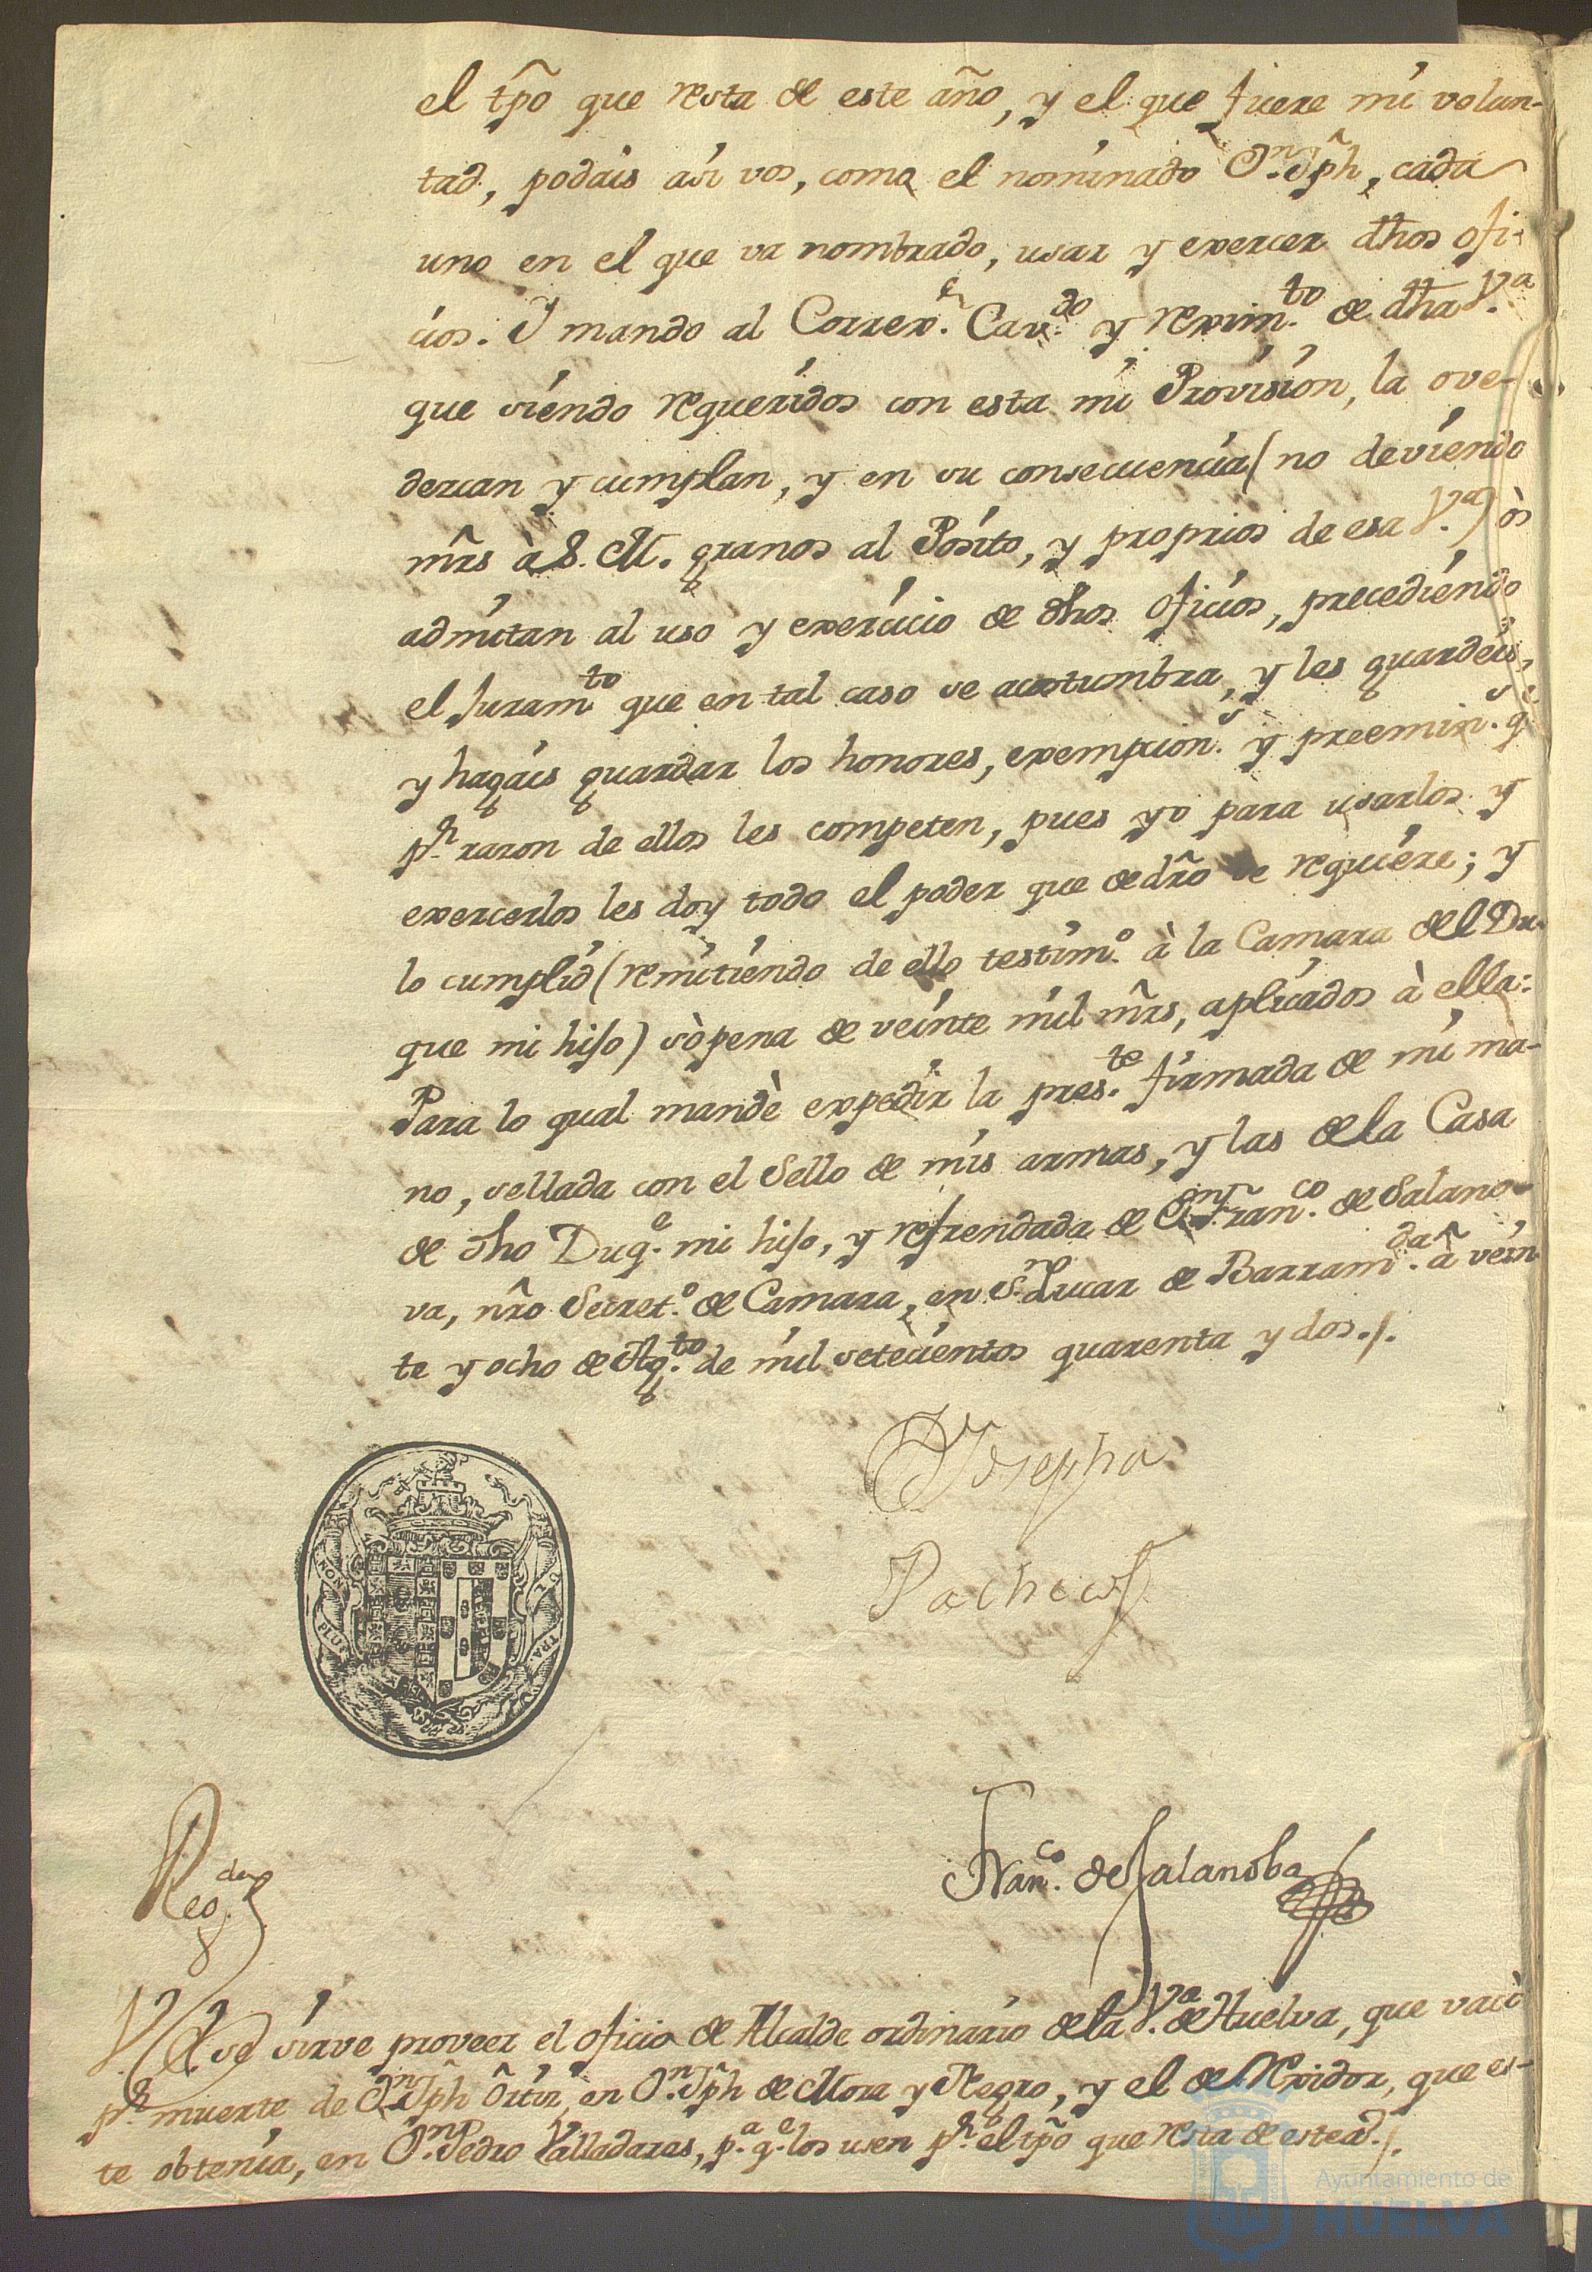 el tp̃o que resta de este año, y el que fuere mi volun-
tad, podáis asi vos, como el nominado Dn. Jph̃, cada
uno en el que va nombrado, usar y exercer dhos ofi-
cios. I mando al Correxr. Cavdo. y reximto. de dha Va.
que siendo requeridos con esta mi Provisión, la ove-
dezcan y cumplan, y en su consecuencia (no deviendo
mrs̃ à S. M. granos al Posito, y proprios de esa Va.) òs
admitan al uso y exercicio de dhos oficios, precediendo
el Juramto que en tal caso se acostumbra, y les guardéis,
y hagáis guardar los honores, exempcions. y preemins. qe
pr. razon de ellos les competen, pues yo para usarlos y
exercerlos les doy todo el poder que de dr̃o se requiere; y
lo cumplid (remitiendo de ello testimo. à la Camara del Du-
que mi hijo) sò pena de veinte mil mr̃s, aplicados à ella:
Para lo qual mandè expedir la preste. firmada de mi ma-
no, sellada con el Sello de mis armas, y las de la Casa
de dho Duqe. mi hijo, y refrendada de Dn. Franco. de Salano-
va, nr̃o Secreto. de Camara, en Sn. Lucar de Barramda. à vein
te y ocho de Agto. de mil setecientos quarenta y dos./.
Josepha
Pacheco
NON PLUS ULTRA
Franco. de Salanoba
Regda
V. E. se sirve proveer el oficio de Alcalde ordinario de la Va. de Huelva, que vacò
pr. muerte de Dn. Jph̃ Ortiz, en Dn. Jph̃ de Mora y Negro, y el de Rexidor, que es-
te obtenia, en Dn. Pedro Valladares, pa. qe. los usen pr. el tp̃o que resta de este ao./.
Ayuntamiento de
HUELVA